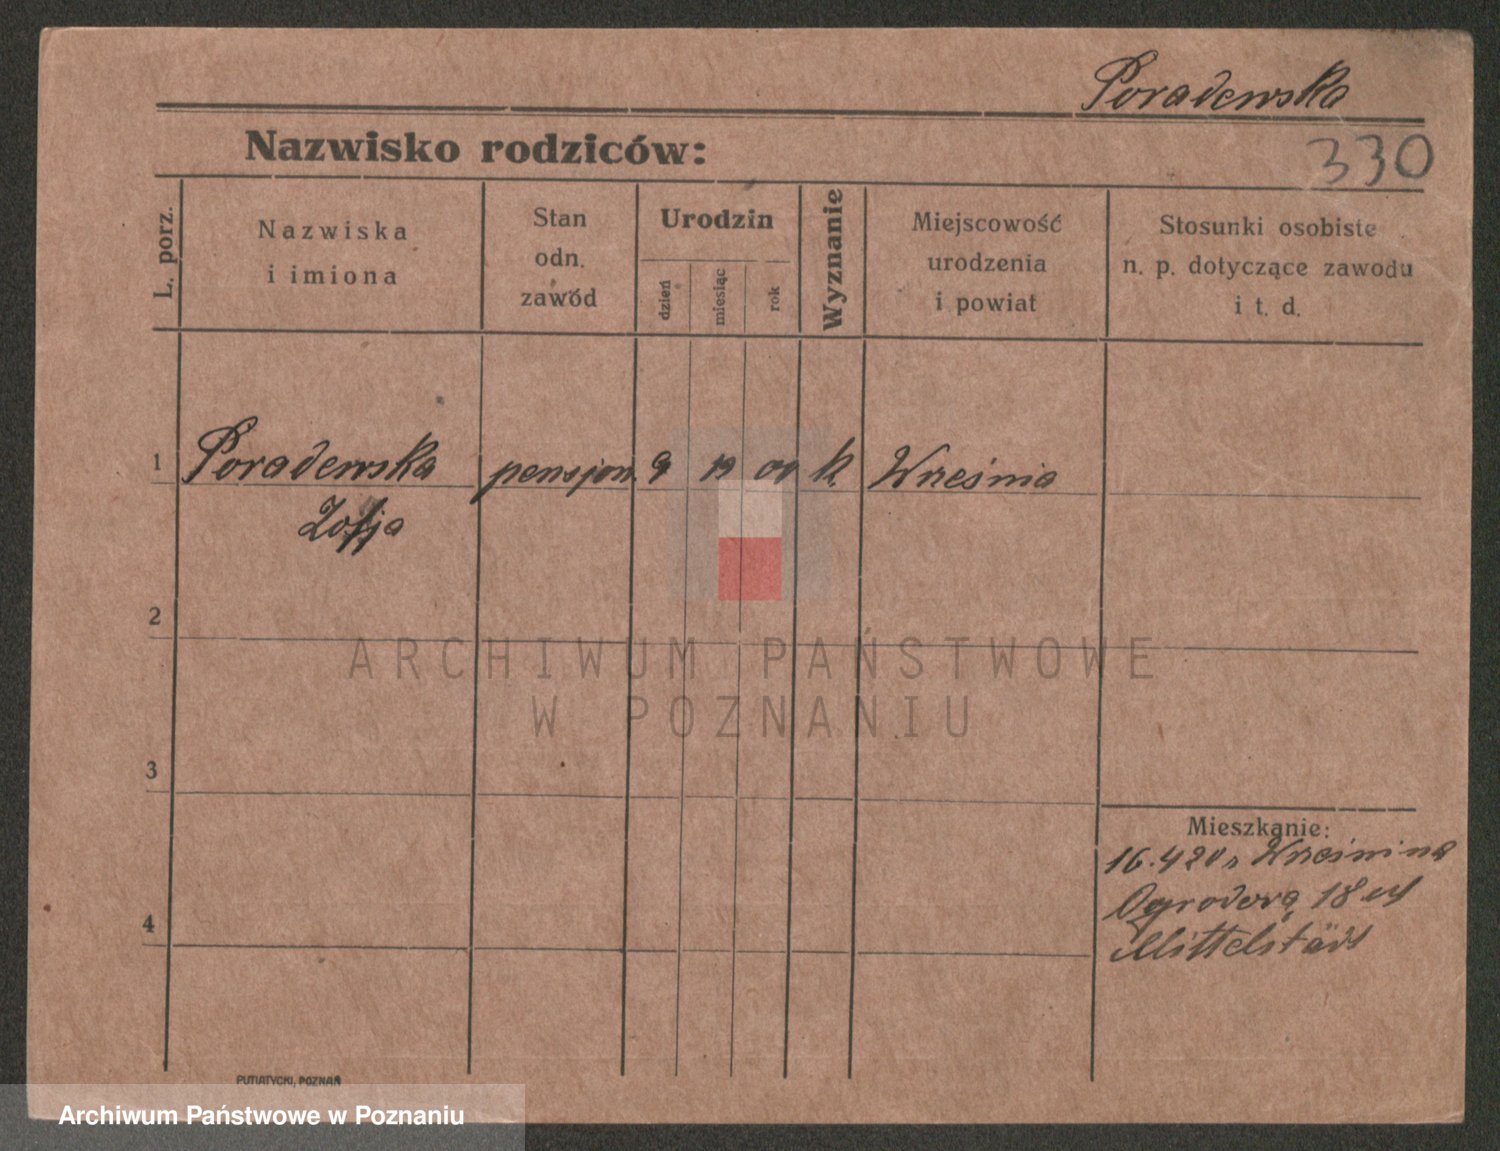 Poradewska
Nazwisko rodziców:
330
L. porz.
Nazwiska
i imiona
Stan
odn.
zawód
Urodzin
dzień
miesiąc
rok
Wyznanie
Miejscowość
urodzenia
i powiat
Stosunki osobiste
n. p. dotyczące zawodu
i t. d.
1
Poradewska pensjon. 9 12 01 k. Wreśnia
Zofja
2
ARCHIWUM PAŃSTWOWE
W POZNANIU
3
Mieszkanie:
16.4 20 z Wreśni na
Ogrodową 18
4
Mittelstädt
PUTIATYCKI, POZNAŃ
Archiwum Państwowe w Poznaniu